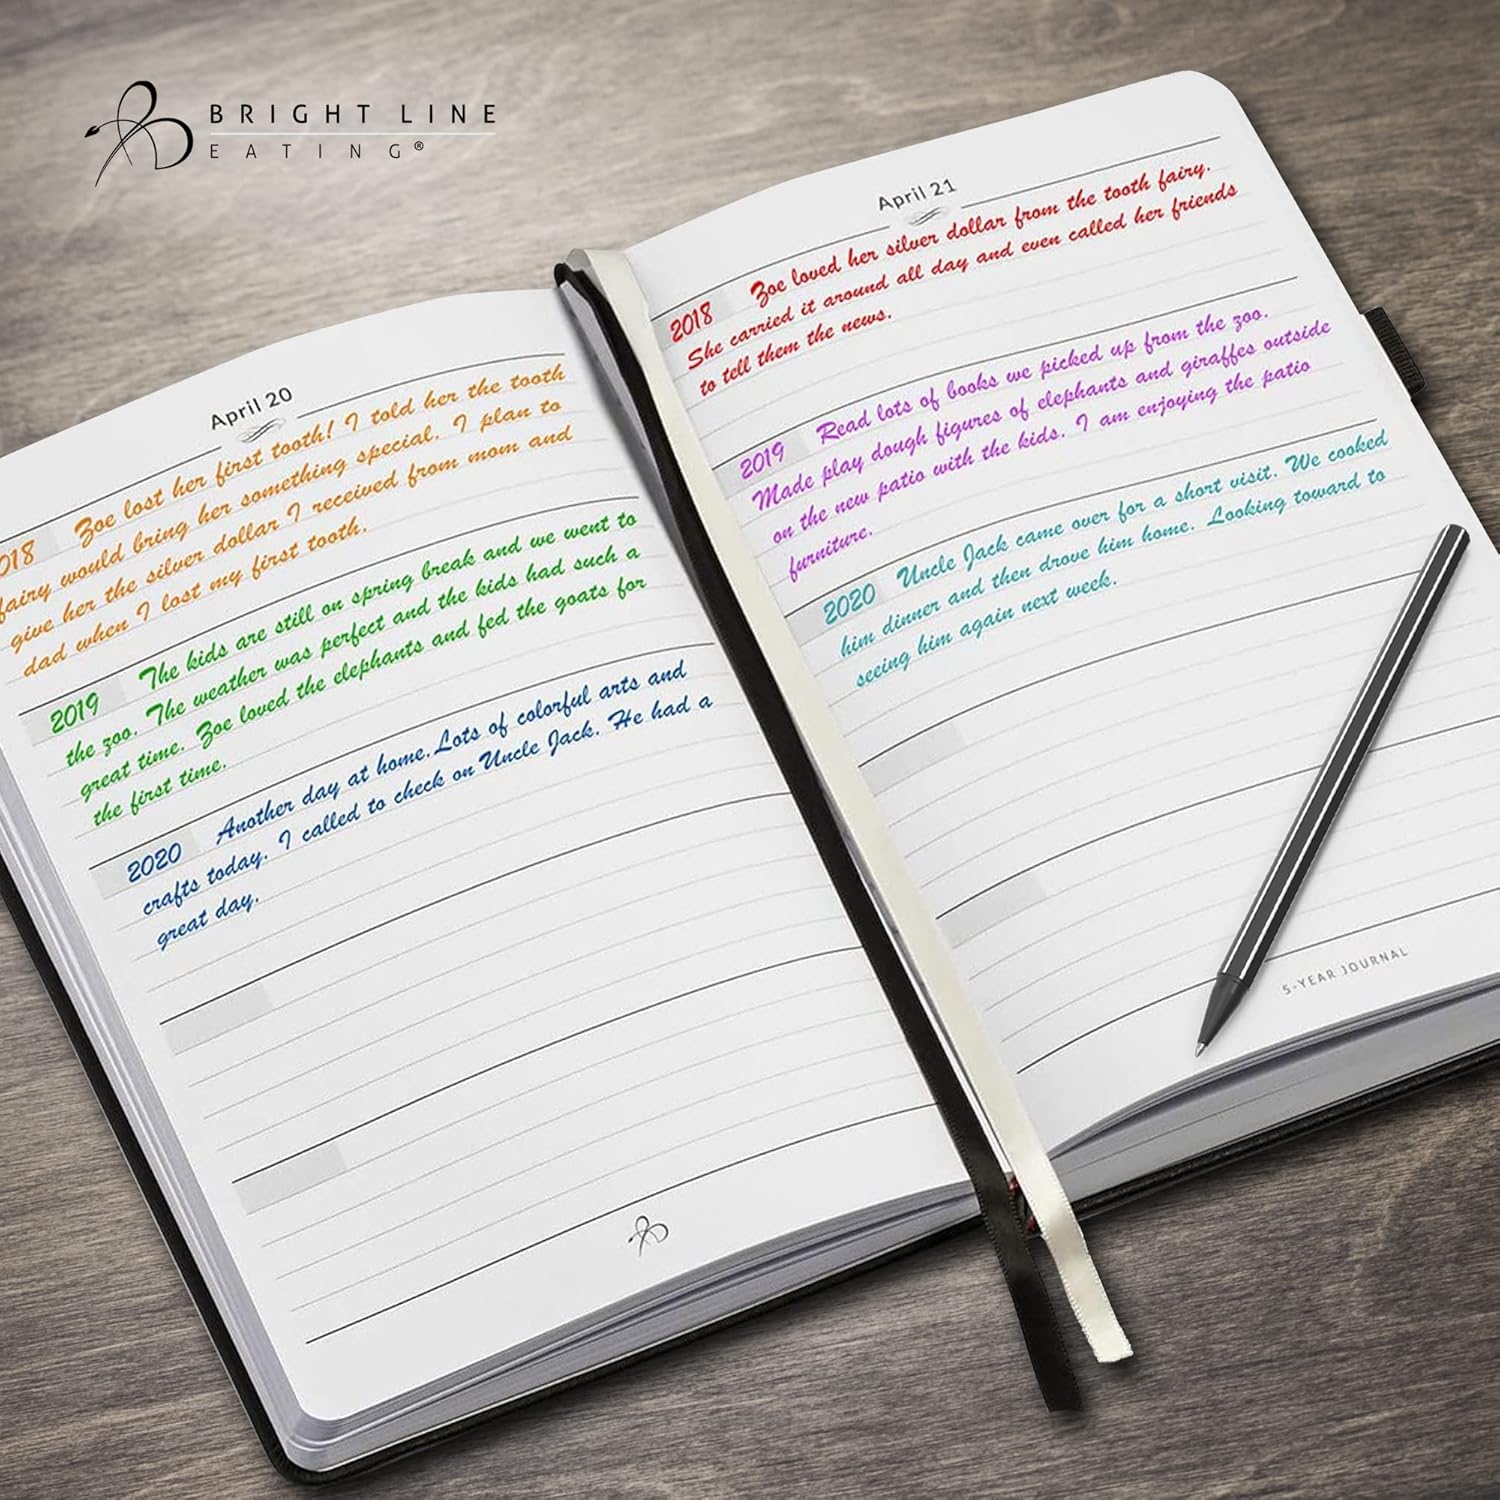 BRIGHT LINE
EATING®
April 20
018 Zoe lost her first tooth! I told her the tooth
fairy would bring her something special. I plan to
give her the silver dollar I received from mom and
dad when I lost my first tooth.
2019 The kids are still on spring break and we went to
the zoo. The weather was perfect and the kids had such a
great time. Zoe loved the elephants and fed the goats for
the first time.
2020 Another day at home. Lots of colorful arts and
crafts today. I called to check on Uncle Jack. He had a
great day.
April 21
2018 Zoe loved her silver dollar from the tooth fairy.
She carried it around all day and even called her friends
to tell them the news.
2019 Read lots of books we picked up from the zoo.
Made play dough figures of elephants and giraffes outside
on the new patio with the kids. I am enjoying the patio
furniture.
2020 Uncle Jack came over for a short visit. We cooked
him dinner and then drove him home. Looking toward to
seeing him again next week.
5-YEAR JOURNAL